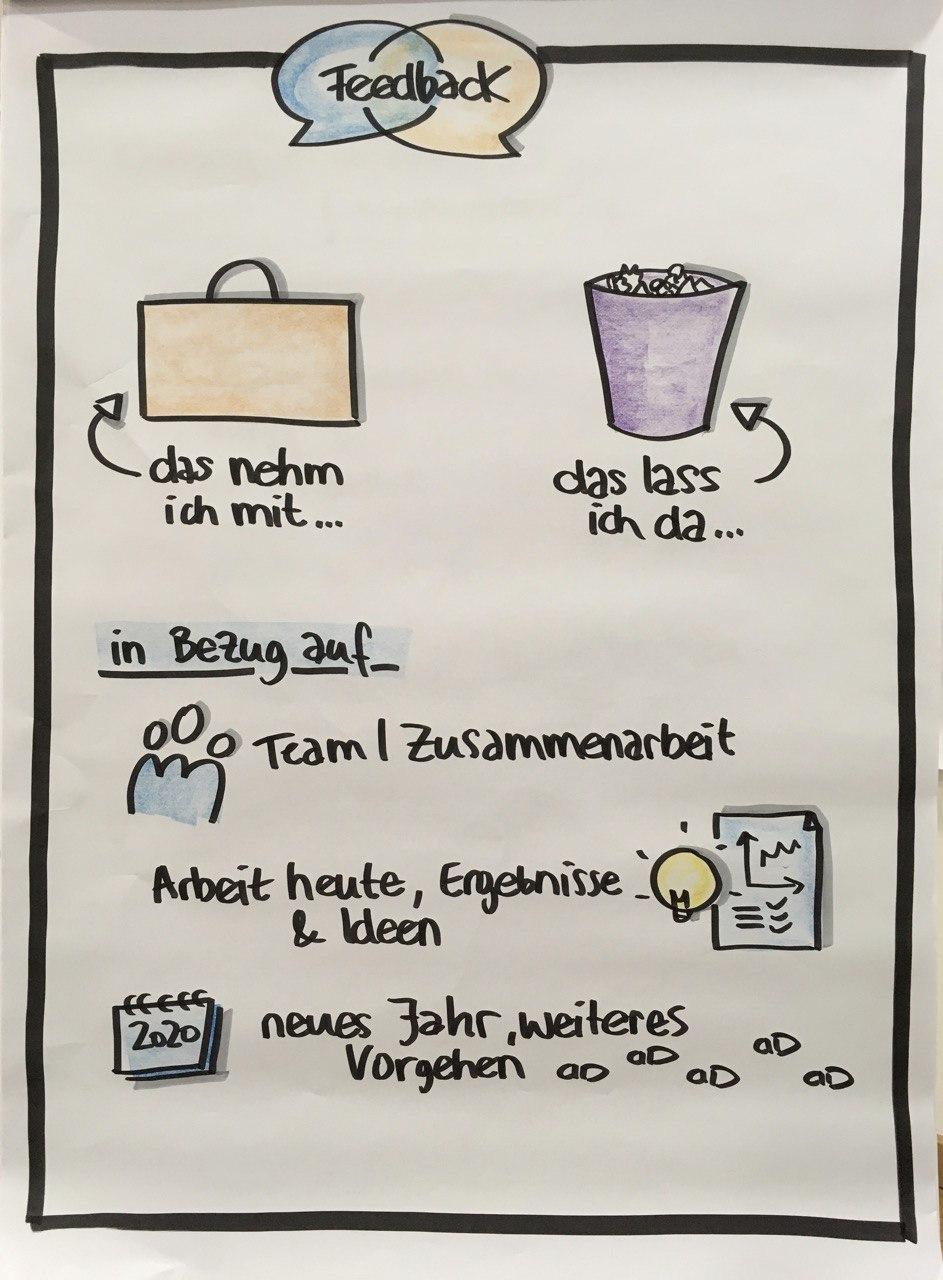 Feedback
das nehm
ich mit...
das lass
ich da...
in Bezug auf_
Team | Zusammenarbeit
Arbeit heute, Ergebnisse
& Ideen
2020
neues Jahr, weiteres
Vorgehen